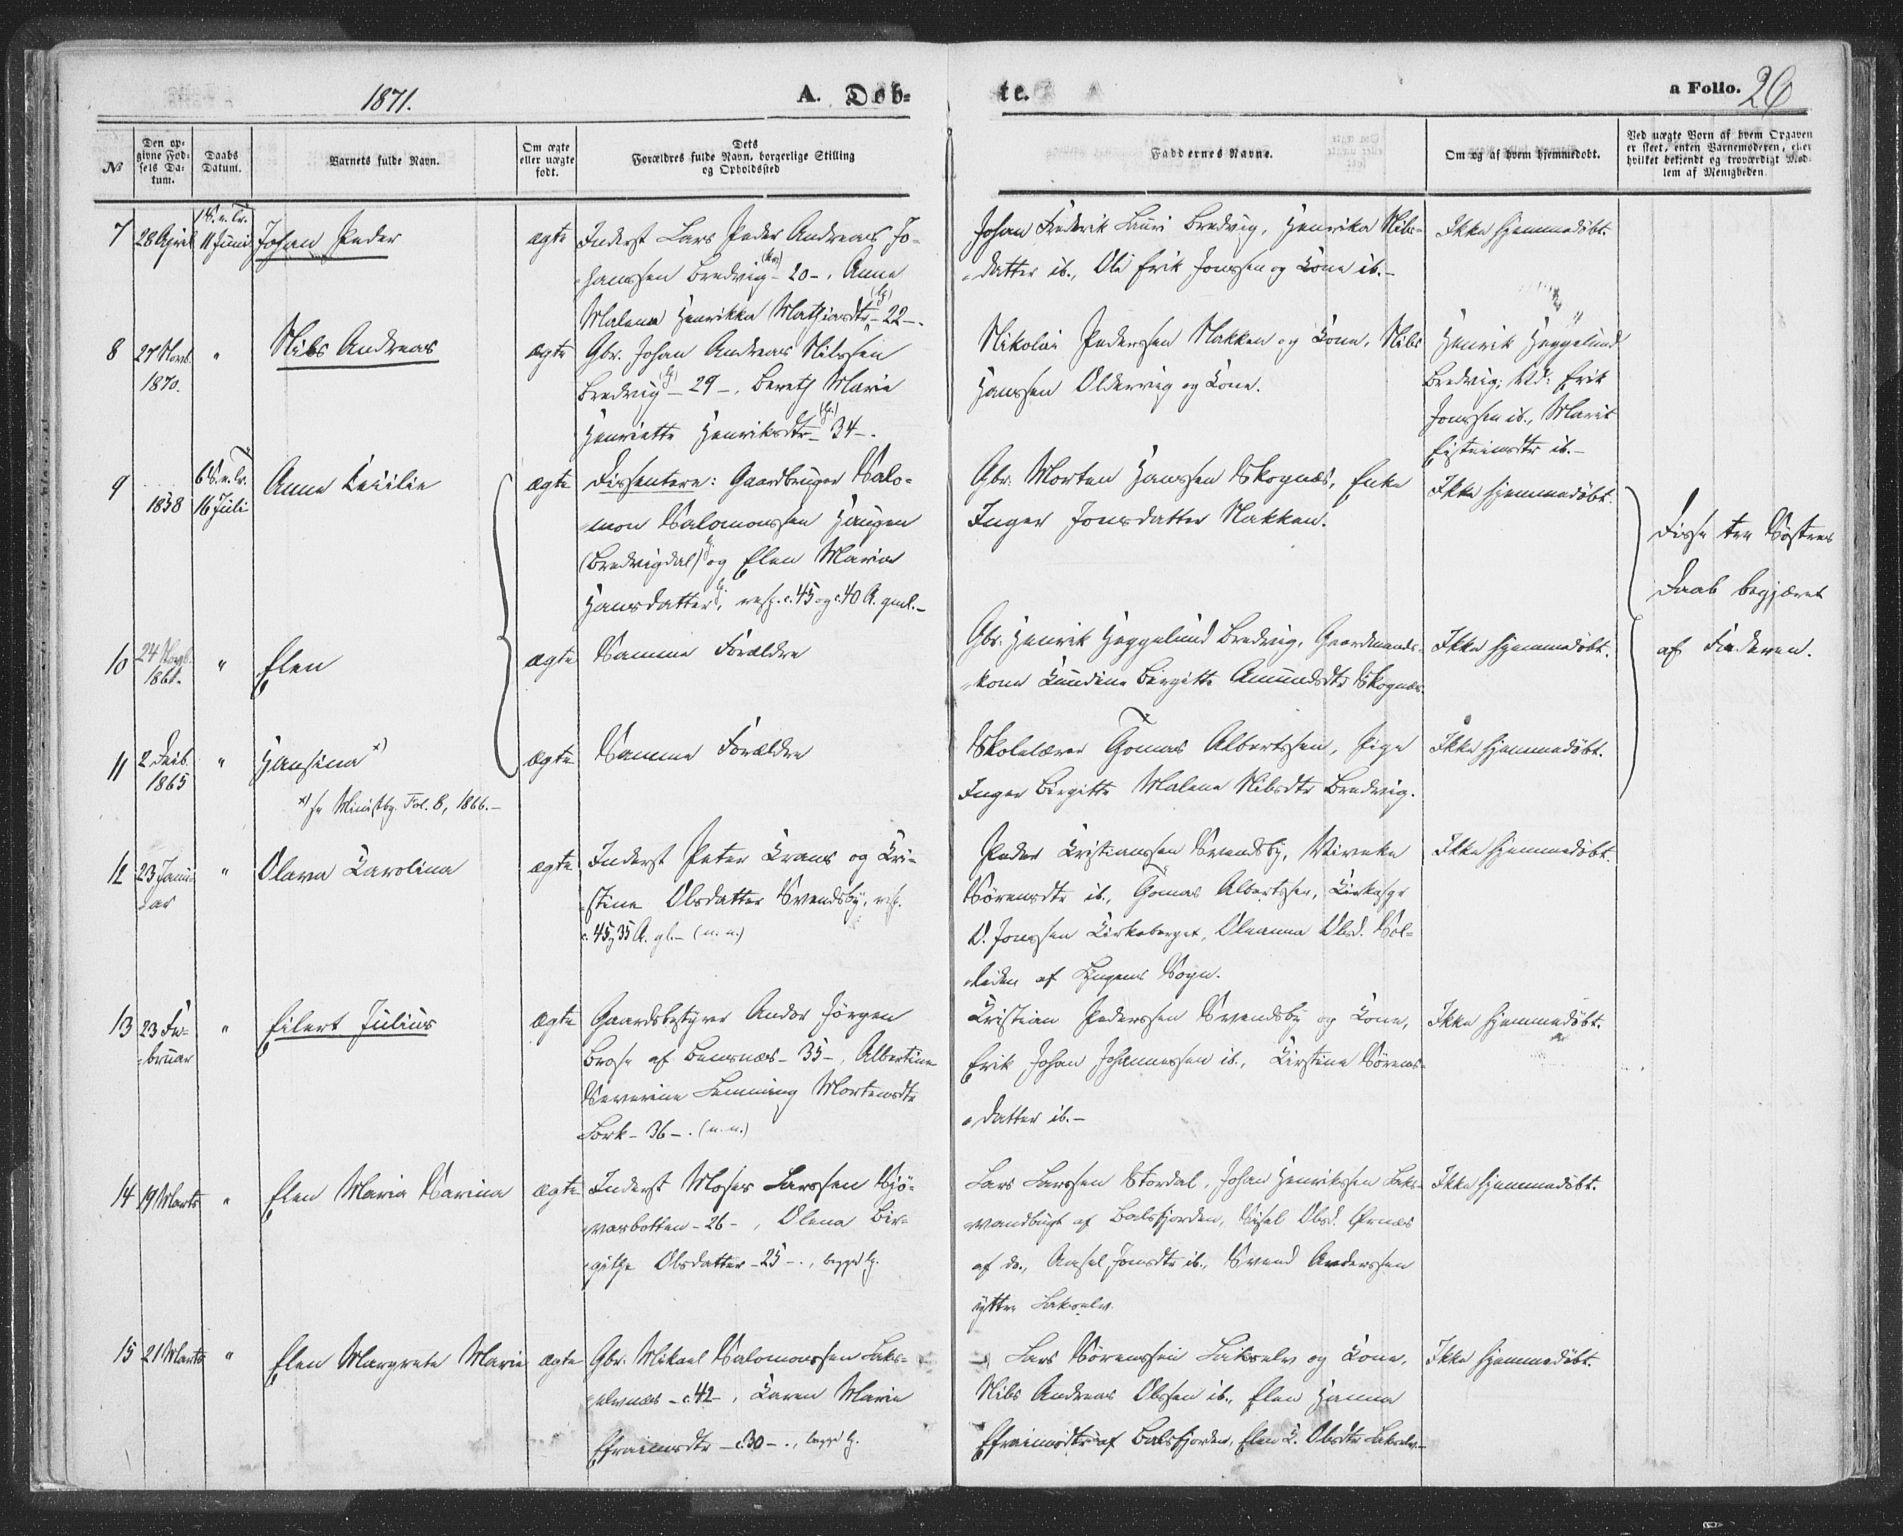 1871.
A. Döb-
te.
a Folio. 26
No
Den op-
givne Fød-
sels Da-
tum.
Daabs
Datum.
Barnets fulde Navn.
Om ægte
eller uægte
født.
Dets
Forældres fulde Navn, borgerlige Stilling
og Opholdssted
Faddernes Navne.
Om og af hvem hjemmedøbt.
Ved uægte Børn af hvem Opgaven
er skeet, enten Barnemoderen, eller
hvilket bekjendt og troværdigt Med-
lem af Menigheden.
7 28 April 1 S. e. Tr. 11 Juni Johan Peder ægte
Inderst Lars Peder Andreas Jo-
hanssen Bredvig - 20 -, Anne
Malena Henrikka Mathiasdtr - 22 -.
Johan Frederik Lauri Bredvig, Henrika Nils-
datter ib., Ole Erik Jonssen og Kone ib. -
Ikke hjemmedöbt.
8 27 Novb. 1870. " Nils Andreas ægte
Gbr. Johan Andreas Nilssen
Bredvig - 29 -, Bereth Marie
Henriette Henriksdtr - 34 -.
Nikolai Pederssen Nakken og Kone, Nils
Hanssen Oldervig og Kone.
Henrik Heggelund
Bredvig; Vid: Erik
Jonssen ib., Marit
Eisteinsdtr ib. -
9 1858 6 S. e. Tr. 16 Juli Anne Cecilie ægte
Dissentere: Gaardbruger Salo-
mon Salomonssen Haugen
(Bredvigdal) og Elen Maria
Hansdatter, resp. c. 45 og c. 40 A. gml. -
Gbr. Morten Hanssen Skognæs, Enke
Inger Jonsdatter Nakken.
Ikke hjemmedöbt.
Disse tre Söstres
Daab begjæret
af Faderen.
10 24 Novb. 1861. " Elen ægte
Samme Forældre
Gbr. Henrik Heggelund Bredvig, Gaardmands-
kone Kundine Birgitte Amundsdtr Skognæs.
Ikke hjemmedöbt.
11 2 Decb. 1865 " Hansina x) ægte
x) se Ministbg. Fol. 8, 1866. -
Samme Forældre
Skolelærer Tomas Albertssen, Pige
Inger Birgitte Malene Nilsdtr Bredvig.
Ikke hjemmedöbt.
12 23 Janu-
ar " Olava Karolina ægte
Inderst Peter Krans og Kri-
stine Olsdatter Svendsby, resp.
c. 45, 35 A. gl. - (n. n.)
Peder Kristianssen Svendsby, Viveke
Sörensdtr ib., Tomas Albertssen, Kirkesgr
O. Jonssen Kirkeberget, Oleanna Olsd. Söl-
leiden af Lyngens Sogn.
Ikke hjemmedöbt.
13 23 Fe-
bruar " Eilert Julius ægte
Gaardsbestyrer Andor Jörgen
Brose af Bensnæs - 35 -, Albertine
Severine Lemming Mortensdtr
Lork - 36 -. (n. n.)
Kristian Pederssen Svendsby og Kone,
Erik Johan Johannessen ib., Kirstine Sörens-
datter ib. -
Ikke hjemmedöbt.
14 19 Marts " Elen Maria Sarina ægte
Inderst Moses Larssen Sjö-
vasbotten - 26 -, Olena Bir-
githe Olsdatter - 25 -., begge lp.
Lars Larssen Stordal, Johan Henrikssen Laks-
vandbugt af Balsfjorden, Sisel Olsd. Örnæs
af do., Ansel Jonsdtr ib., Svend Anderssen
yttre Lakselv.
Ikke hjemmedöbt.
15 21 Marts " Elen Margrete Marie ægte
Gbr. Mikael Salomonssen Laks-
elvnæs - c. 42 -, Karen Marie
Efraimsdtr - c. 30 -., begge lp.
Lars Sörenssen Lakselv og Kone,
Nils Andreas Olssen ib., Elen Hanna
Efraimsdtr af Balsfjorden, Elen K. Olsdtr Lakselv. -
Ikke hjemmedöbt.